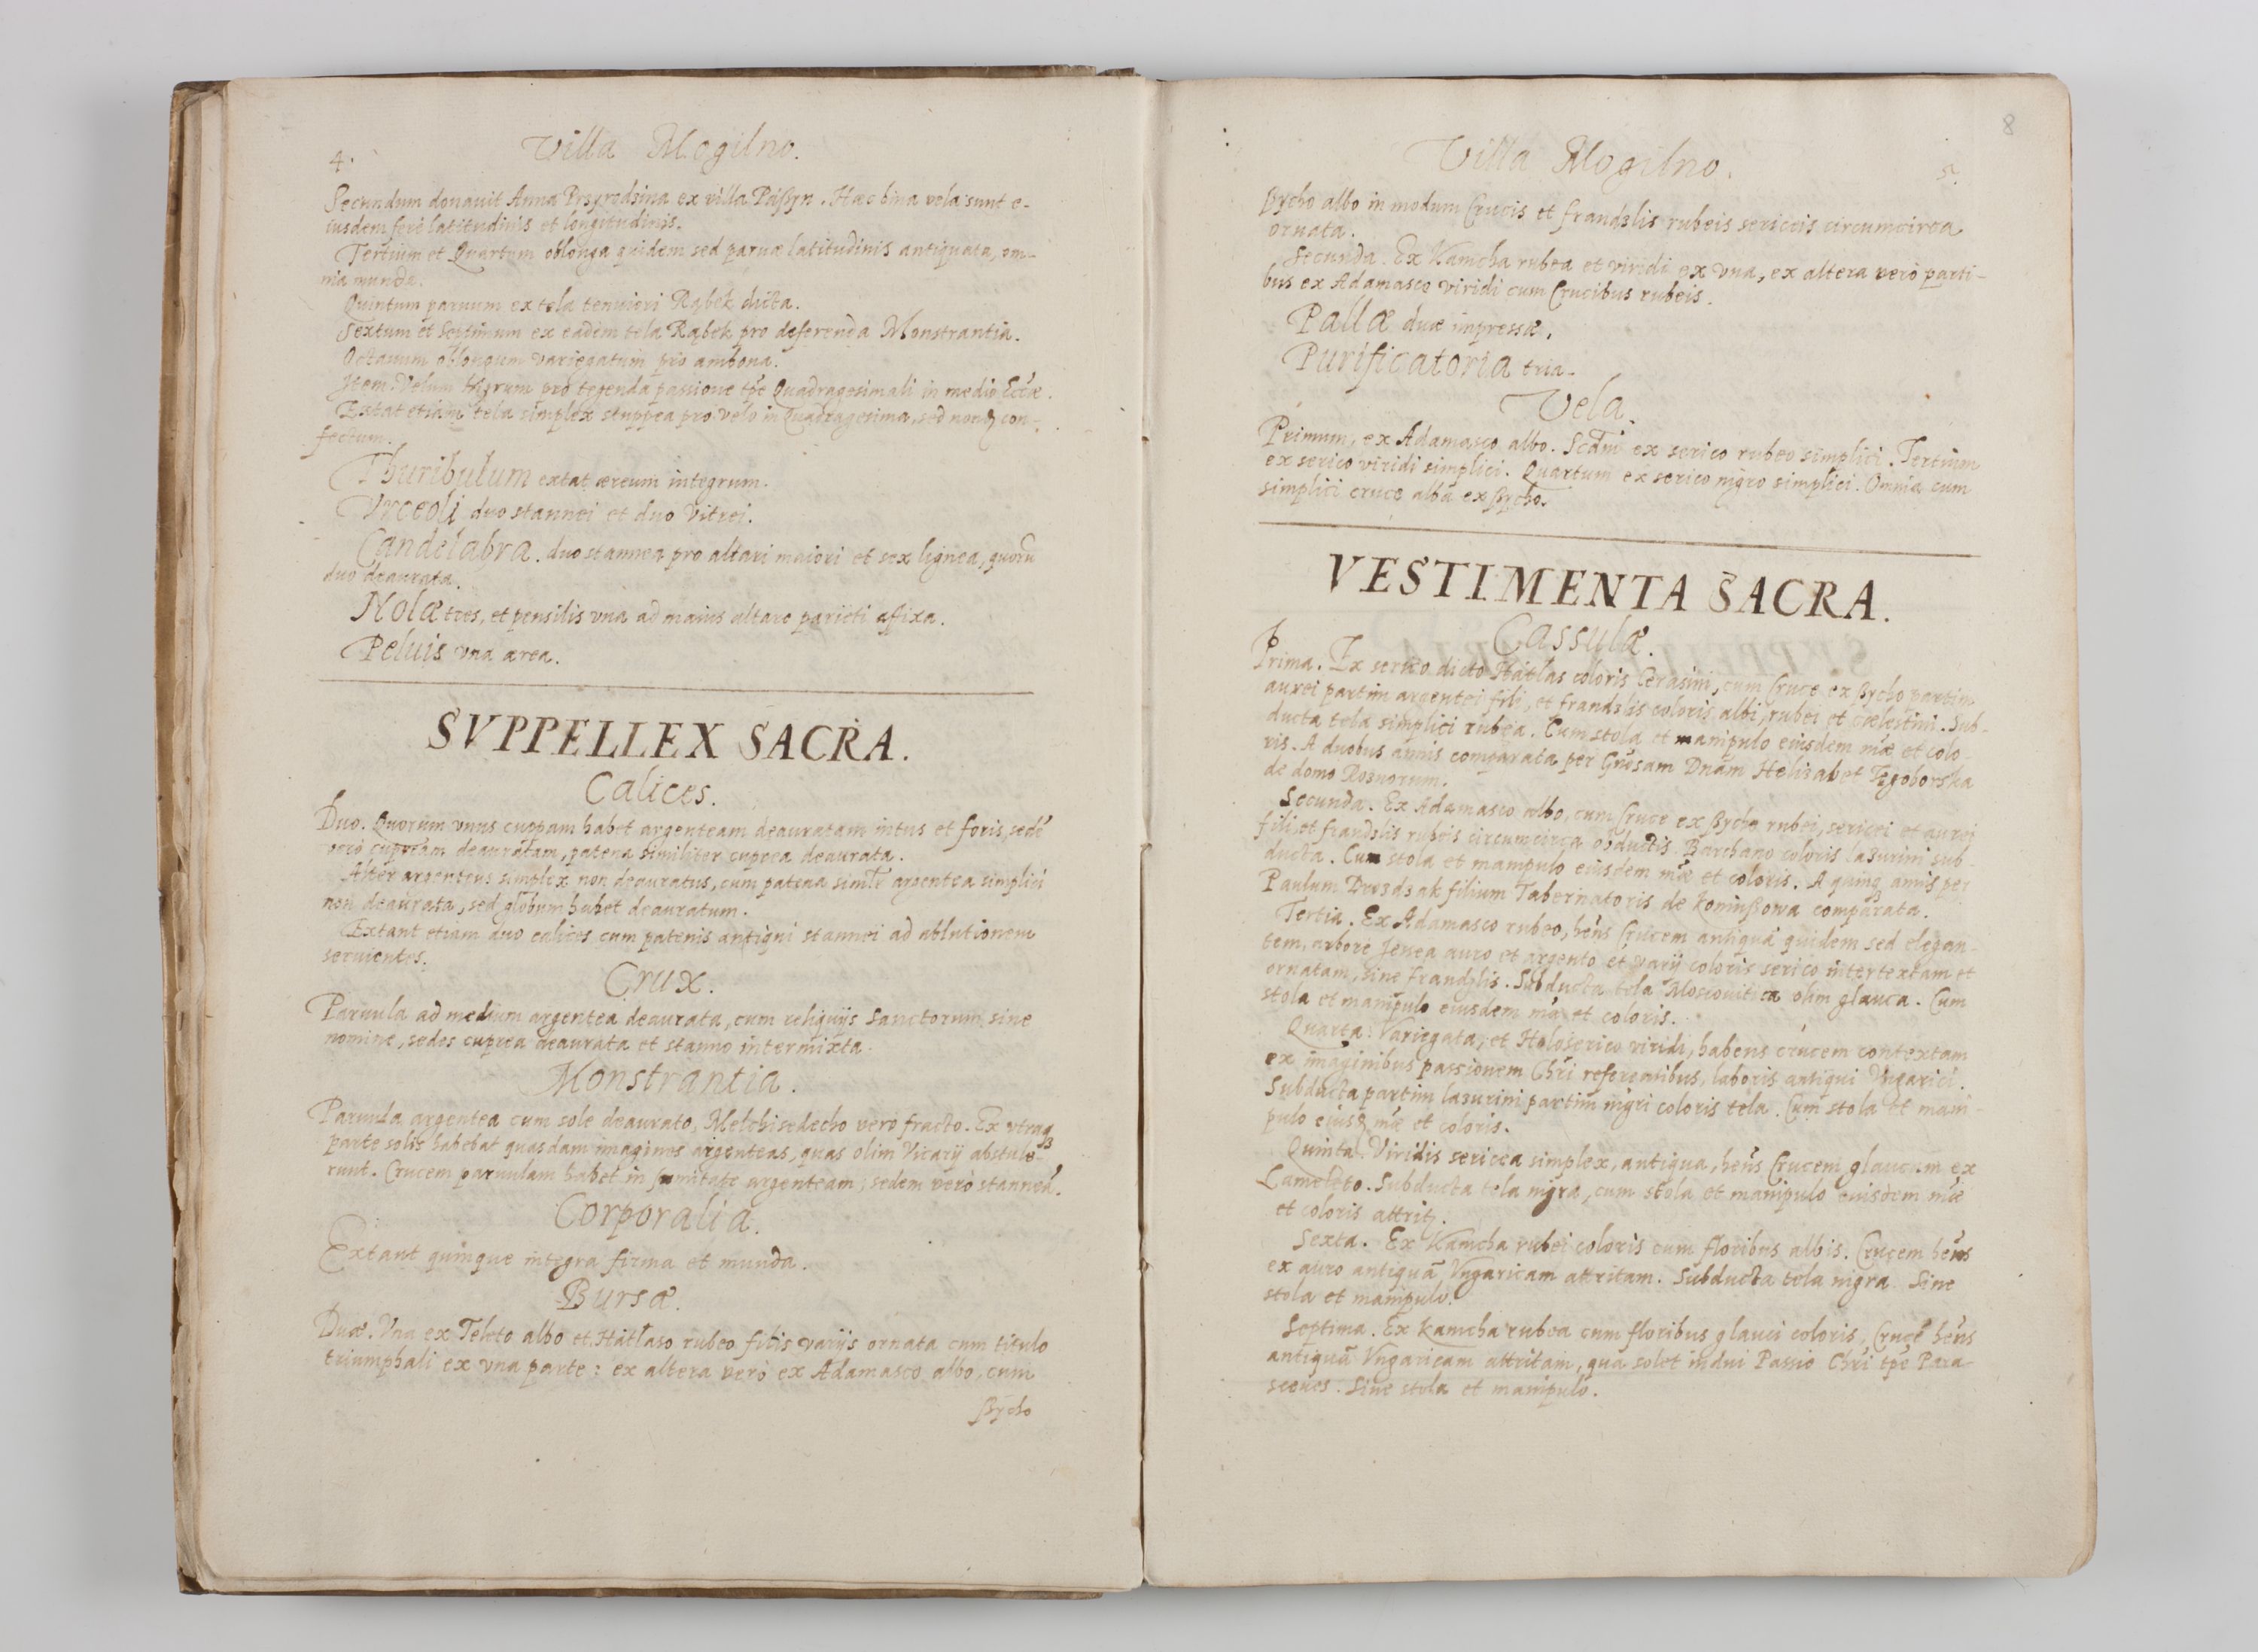 4.
Villa Mogilno.
Secundum donauit Anna Przyrodzina ex villa Paßyn. Haec bina vela sunt e-
iusdem ferè latitudinis et longitudinis.
Tertium et Quartum oblonga quidem sed paruae latitudinis antiquata, om-
nia munda.
Quintum paruum ex tela tenuiori Rąbek dicta.
Sextum et Septimum ex eadem tela Rąbek pro deferenda Monstrantia.
Octauum oblongum variegatum pro ambona.
Item. Velum Nigrum pro tegenda passione tp̃e Quadragesimali in medio Ecc̃ae.
Extat etiam tela simplex stuppea pro velo in Quadragesima, sed non con-
fectum.
Thuribulum extat aereum integrum.
Vrceoli duo stannei et duo vitrei.
Candelabra. duo stannea pro altari maiori et sex lignea, quorũ
duo deaurata.
Nolæ tres, et pensilis vna ad maius altare parieti affixa.
Peluis vna aerea.
SVPPELLEX SACRA.
Calices.
Duo. Quorum vnus cuppam habet argenteam deauratam intus et foris, sedẽ
verò cupream deauratam, patena similiter cuprea deaurata.
Alter argenteus simplex non deauratus, cum patena simlr̃ argentea simplici
non deaurata, sed globum habet deauratum.
Extant etiam duo calices cum patenis antiqui stannei ad ablutionem
seruientes.
Crux.
Paruula ad medium argentea deaurata, cum reliquijs Sanctorum sine
nomine, sedes cuprea deaurata et stanno intermixta.
Monstrantia.
Paruula argentea cum sole deaurato, Melchisedecho verò fracto. Ex vtraq3
parte solis habebat quasdam imagines argenteas, quas olim Vicarij abstule-
runt. Crucem paruulam habet in sumitate argenteam, sedem verò stanneã.
Corporalia.
Extant quinque integra firma et munda.
Bursæ.
Duæ. Vna ex Teleto albo et Hatłaso rubeo filis varijs ornata cum titulo
triumphali ex vna parte: ex altera verò ex Adamasco albo, cum
ßycho
8
Villa Mogilno.
5.
ßycho albo in modum Crucis et frandzlis rubeis sericeis circumcirca
ornata.
Secunda. Ex Kamcha rubea et viridi ex vna, ex altera verò parti-
bus ex Adamasco viridi cum Crucibus rubeis.
Pallæ duæ impressæ.
Purificatoria tria.
Vela.
Primum, ex Adamasco albo. Scdm̃ ex serico rubeo simplici. Tertium
ex serico viridi simplici. Quartum ex serico nigro simplici. Omnia cum
simplici cruce alba ex ßycho.
VESTIMENTA SACRA.
Cassulæ.
Prima. Ex serico dicto Hatłas coloris Cerasini, cum Cruce ex ßycho partim
aurei partim argentei fili, et frandzlis coloris albi, rubei et cælestini. Sub-
ducta tela simplici rubea. Cum stola et manipulo eiusdem mãe et colo-
ris. A duobus annis comparata per Gñosam Dnãm Helisabet Tęgoborska
de domo Roznorum.
Secunda. Ex Adamasco albo, cum Cruce ex ßycho rubei, sericei et aurei
fili, et frandzlis rubeis circumcirca obductis. Barchano coloris lazurini sub-
ducta. Cum stola et manipulo eiusdem mãe et coloris. A quinq3 annis per
Paulum Drozdzak filium Tabernatoris de Koninßowa comparata.
Tertia. Ex Adamasco rubeo, hẽns Crucem antiquã quidem sed elegan-
tem, arbore Jenea auro et argento et varij coloris serico intertextam et
ornatam, sine frandzlis. Subducta tela Moscouitica olim glauca. Cum
stola et manipulo eiusdem mãe et coloris.
Quarta. Variegata, et Holoserico viridi, habens crucem contextam
ex imaginibus passionem Chri referentibus, laboris antiqui Vngarici.
Subducta partim lazurini partim nigri coloris tela. Cum stola et mani-
pulo eiusd mãe et coloris.
Quinta. Viridis sericea simplex, antiqua, hẽns Crucem glaucam ex
Cameleto. Subducta tela nigra, cum stola et manipulo eiusdem mãe
et coloris attrit.
Sexta. Ex Kamcha rubei coloris cum floribus albis. Crucem hẽns
ex auro antiquã Vngaricam attritam. Subducta tela nigra. Sine
stola et manipulo.
Septima. Ex kamcha rubea cum floribus glauci coloris, Crucẽ hẽns
antiquã Vngaricam attritam, qua solet indui Passio Chri tp̃e Para-
sceues. Sine stola et manipulo.